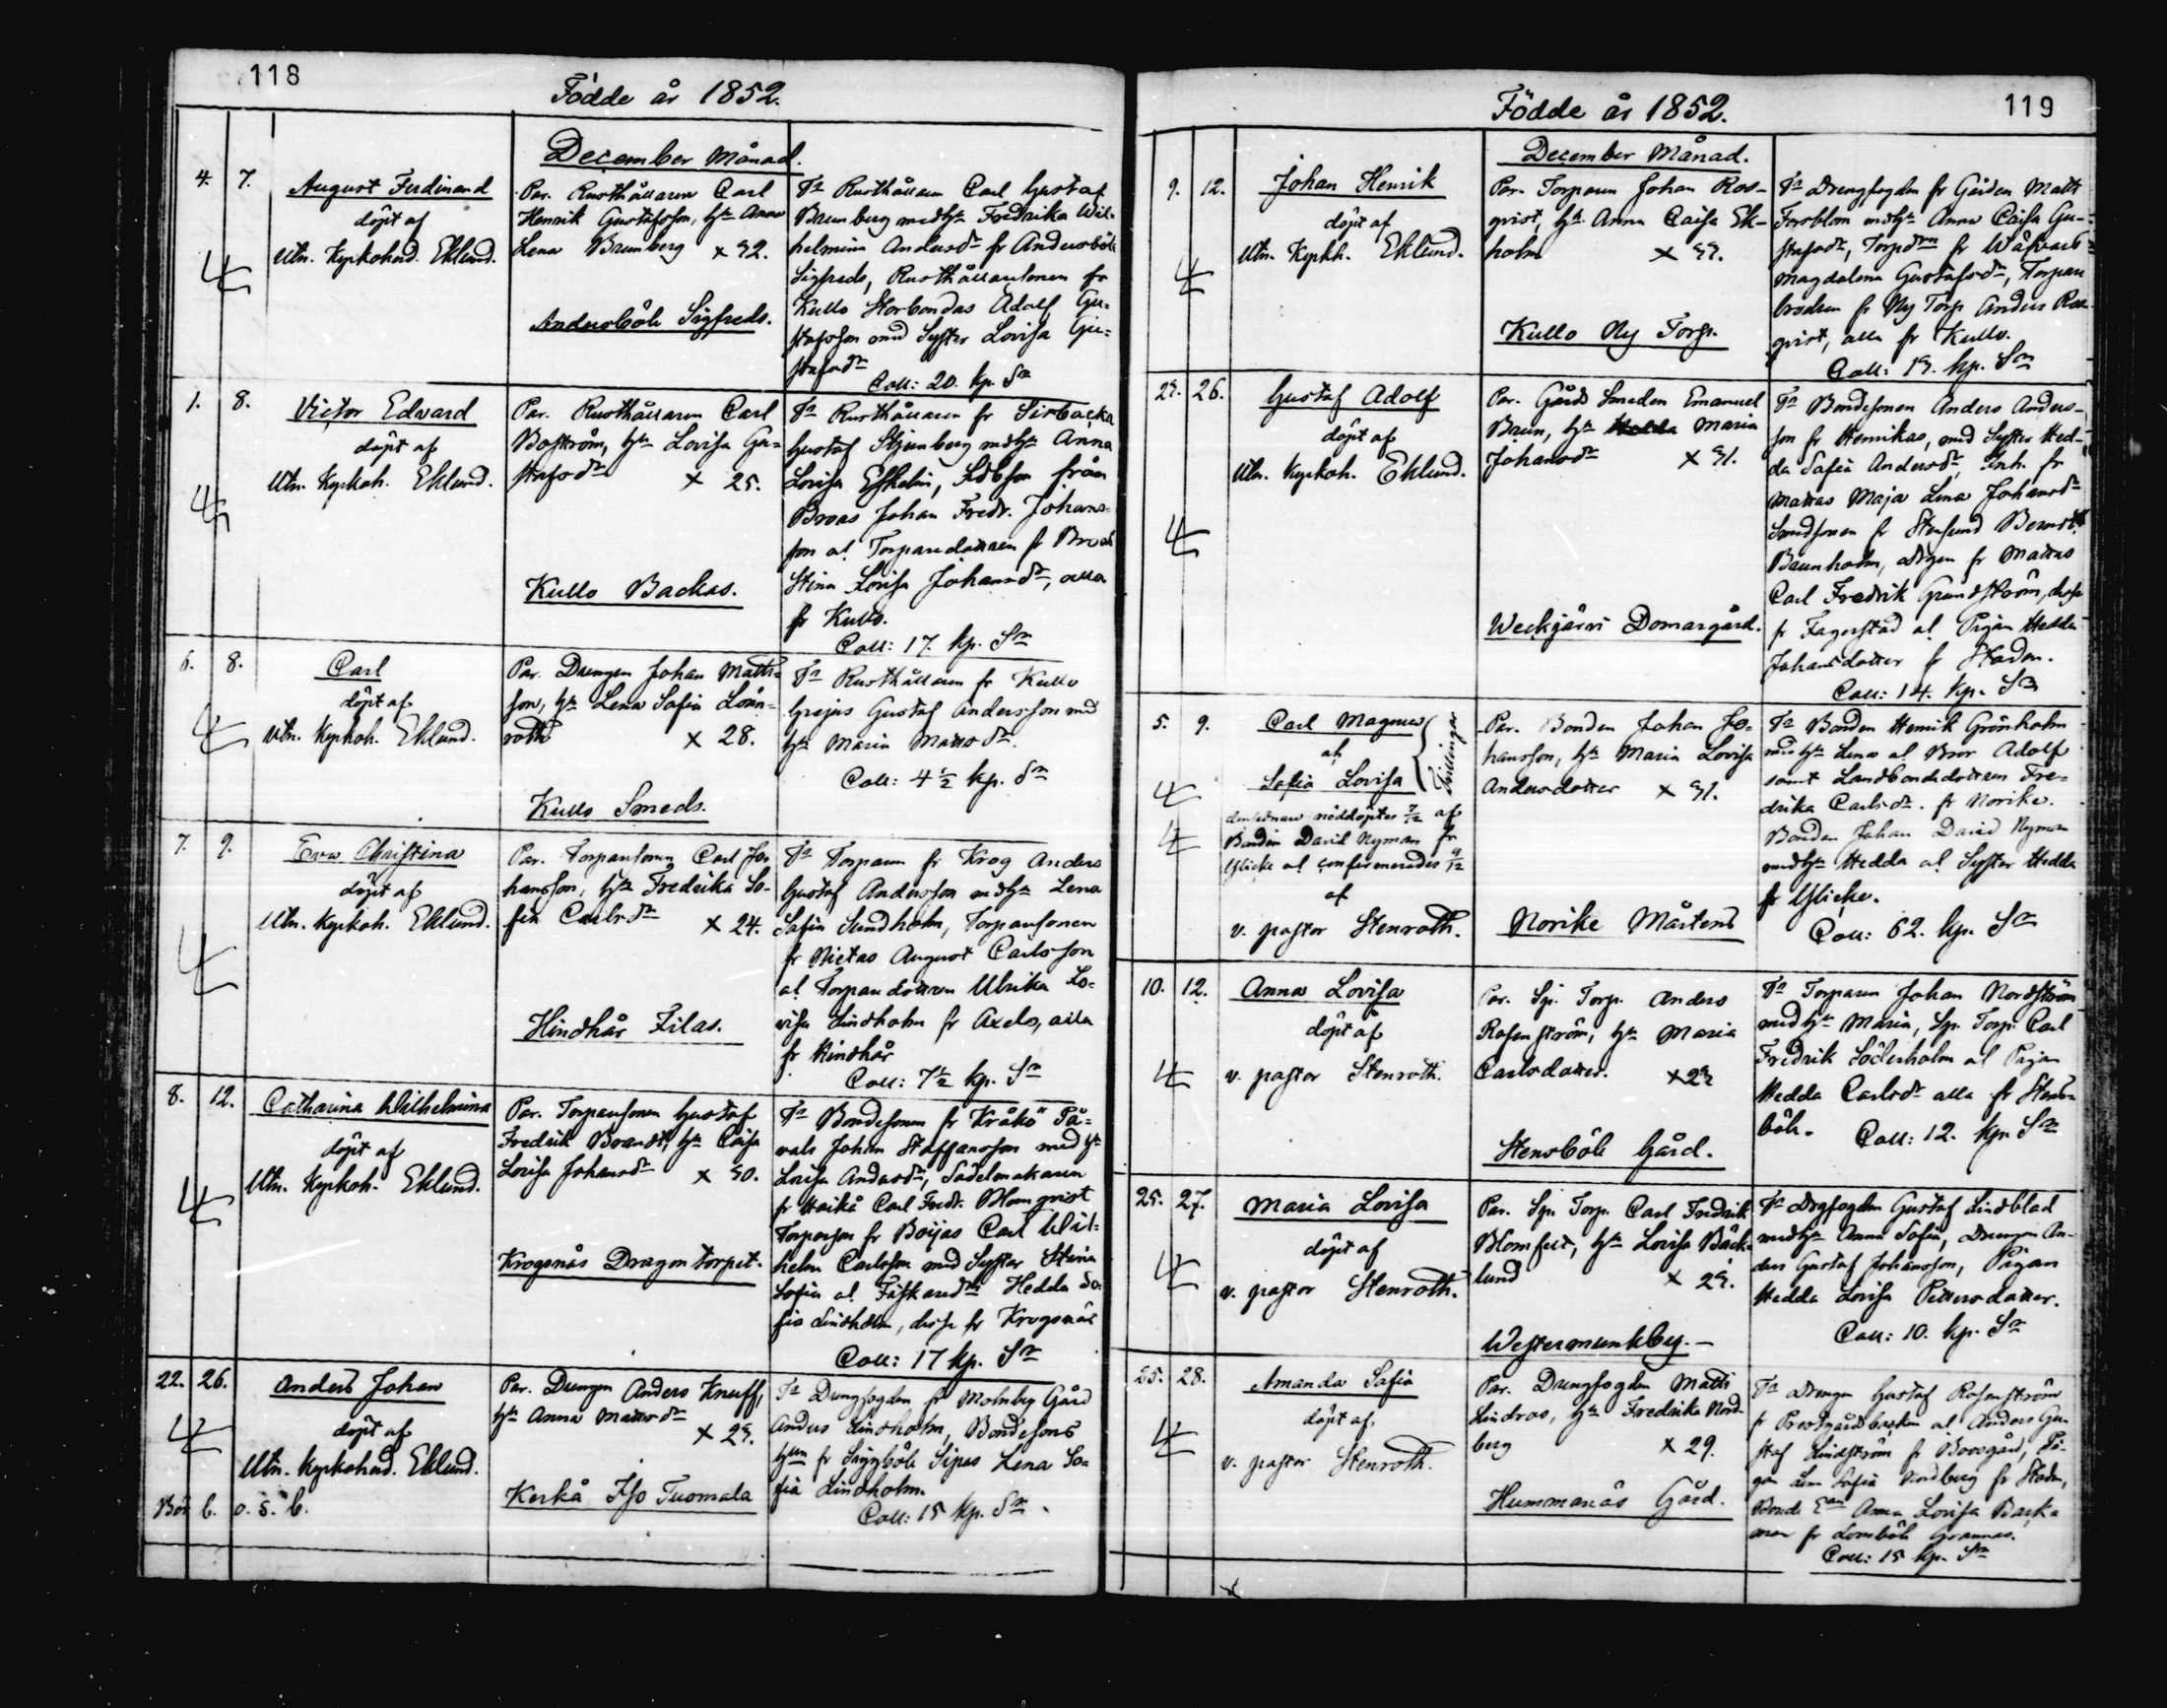 118
Födde år 1852.
December Månad.
4. 7. August Ferdinand
döpt af
Utn. Kyrkoherd. Eklund.
Par. Rusthållaren Carl
Henrik Gustafsson, h:n Anna
Lena Brunberg x 32.
Andersböle Sigfreds.
Fr Rusthållaren Carl Gustaf
Brunberg med h:n Fredrika Wil-
helmina Andersdr fr Andersböle
Sigfreds, Rusthållaresonen fr
Kullo Storbondas Adolf Gu-
stafsson med Syster Lovisa Gu-
stafsdr
Coll: 20. kp. Sr
1. 8. Victor Edvard
döpt af
Utn. Kyrkoh. Eklund.
Par. Rusthållaren Carl
Boström, h:n Lovisa Gu-
stafsdr x 25.
Kullo Backas.
Fr Rusthållaren fr Sirbacka
Gustaf Stjernberg med h:n Anna
Lovisa Eskelin, från
Broas Johan Fredr. Johans-
son o! Torparedottren fr Broas
Stina Lovisa Johansdr, alla
fr Kullo.
Coll: 17. kp. Sr
6. 8. Carl
döpt af
Utn. Kyrkoh. Eklund.
Par. Drengen Johan Matts-
son, h:n Lena Sofia Lönn-
roth x 28.
Kullo Smeds.
Fr Rusthållaren fr Kullo
Grejus Gustaf Andersson med
h:n Maria Mattsdr.
Coll: 4½ kp. Sr
7. 9. Eva Christina
döpt af
Utn. Kyrkoh. Eklund.
Par. Torparesonen Carl Jo-
hansson, h:n Fredrika So-
fia Carlsdr x 24.
Hindhår Filas.
Fr Torparen fr Krog Anders
Gustaf Andersson med h:n Lena
Safia Sundholm, Torparesonen
fr Nietas August Carlsson
o! Torparedottren Ulrika Lo-
visa Lindholm fr Axels, alla
fr Hindhår
Coll: 7½ kp. Sr
8. 12. Catharina Wilhelmina
döpt af
Utn. Kyrkoh. Eklund.
Par. Torparesonen Gustaf
Fredrik Brandt, h:n Caisa
Lovisa Johansdr x 30.
Krogsnäs Dragontorpet.
Fr Bondesonen fr Kråkö På-
wals Johan Staffansson med h:n
Lovisa Andersdr, Sadelmakaren
fr Haikå Carl Fredr. Blomqvist
Torpareson fr Böijas Carl Wil-
helm Carlsson med Syster Stina
Sofia o! Fiskaredr Hedda So-
fia Lindholm, desse fr Krogsnäs
Coll: 17 kp. Sr
22. 26. Anders Johan
döpt af
Utn. Kyrkoherd. Eklund.
Bör b. o. s. b.
Par. Drengen Anders Knuff,
h:n Anna Mattsdr
x 23.
Kerkå Iso Tuomala
Fr Drengfogden fr Molnby Gård
Anders Lindholm, Bondesons
h:un fr Skyggböle Sipas Lena So-
fia Lindholm.
Coll: 15 kp. Sr.
119
Födde år 1852.
December Månad.
9. 12. Johan Henrik
döpt af
Utn. Kyrkh. Eklund.
Par. Torparen Johan Ros-
qvist, h:n Anna Caisa Ek-
holm x 33.
Kullo Ny Torp.
Fr Drengfogden fr Gården Matts
Forsblom med h:n Anna Caisa Gu-
stafsdr, Torpdrn fr
Magdalena Gustafsdr, Torpare
brodren fr Ny Torp Anders Ros-
qvist, alla fr Kullo.
Coll: 13. kp. Sr
23. 26. Gustaf Adolf
döpt af
Utn. Kyrkoh. Eklund.
Par. Gårds Smeden Emanuel
Baun, h:n Maria
Johansdr x 31.
Weckjärvi Domargård.
Fr Bondesonen Anders Anders-
son fr Henrikas, med Syster Hed-
da Safia Andersdr, Inh. fr
Mattas Maja Lena Johansdr
Smedsonen fr Stensund Berndt
Baunholm, drgen fr Mattas
Carl Fredrik Grundström, desse
fr Fagerstad o! Pigan Hedda
Johansdotter fr Staden.
Coll: 14. kp. Sr
5. 9. Carl Magnus
o!
Safia Lovisa
Tvillingar
den sednare nöddöptes 7/12 af
Bonden David Nyman fr
Ylicke o! confirmerades 9/12
af
v. pastor Stenroth.
Par. Bonden Johan Jo-
hansson, h:n Maria Lovisa
Andersdotter x 31.
Norike Mårtens
Fr Bonden Henrik Grönholm
med h:n Lena o! Bror Adolf
samt Landbondedottren Fre-
drika Carlsdr. fr Norike.
Bonden Johan David Nyman
med h:n Hedda o! Syster Hedda
fr Ylicke.
Coll: 62. kp. Sr
10. 12. Anna Lovisa
döpt af
v. pastor Stenroth.
Par. Sp. Torp. Anders
Rosenström, h:n Maria
Carlsdotter. x 23
Stensböle Gård.
Fr Torparen Johan Nordström
med h:n Maria, Sp. Torp. Carl
Fredrik Söderholm o! Pigan
Hedda Carlsdr alla fr Stens-
böle. Coll: 12. kp. Sr
25. 27. Maria Lovisa
döpt af
v. pastor Stenroth.
Par. Sp. Torp. Carl Fredrik
Blomfelt, h:n Lovisa Bäck-
lund x 23.
Westermunkby.
Fr Drgfogden Gustaf Lindblad
med h:n Anna Sofia, Drengen An-
ders Gustaf Johansson, Pigan
Hedda Lovisa Pettersdotter.
Coll: 10. kp. Sr
25. 28. Amanda Safia
döpt af
v. pastor Stenroth.
Par. Drengfogden Matts
Lindros, h:n Fredrika Nord-
berg x 29.
Hummanäs Gård.
Fr Drengen Gustaf Rosenström
fr Prestgårdsbacken o! Anders Gu-
staf Lindström fr Boosgård, Pi-
gan Lena Safia Lindberg fr Staden,
Bonde Anna Lovisa Back-
man fr Lomböle Grannas.
Coll: 15 kp. Sr